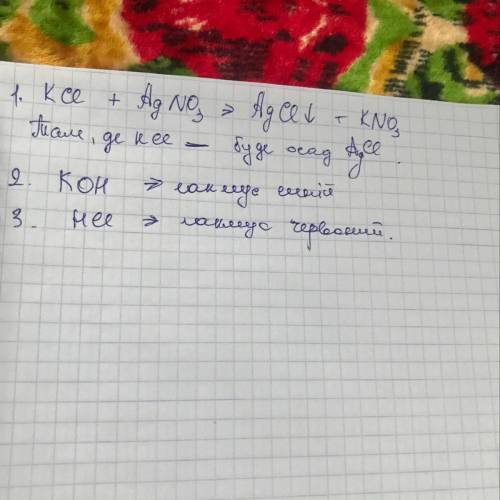 1. KCl + AgNO₃ ⇒ AgCl↓ + KNO₃
Там, де KCl — буде осад AgCl.
2. KOH ⇒ лакмус синій
3. HCl ⇒ лакмус червоний.